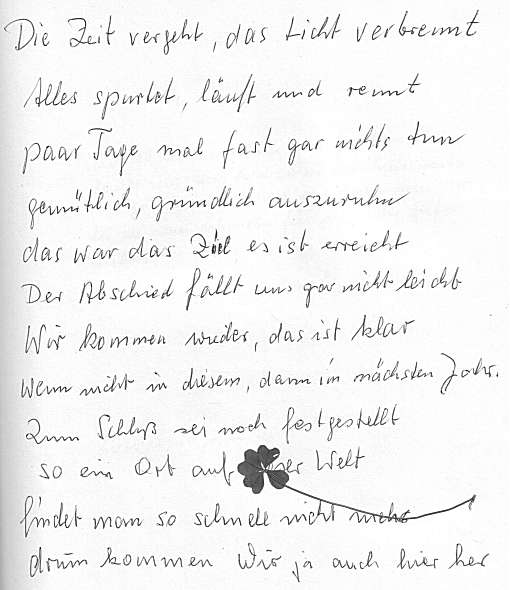 Die Zeit vergeht, das Licht verbrennt
Alles spurtet, läuft und rennt
paar Tage mal fast gar nichts tun
gemütlich, gründlich auszuruhn
das war das Ziel es ist erreicht
Der Abschied fällt uns gar nicht leicht
Wir kommen wieder, das ist klar
Wenn nicht in diesem, dann im nächsten Jahr.
Zum Schluß sei noch festgestellt
so ein Ort auf Welt
findet man so schnell nicht mehr
drum kommen Wir ja auch hier her